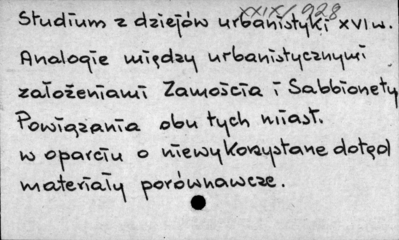 XXIX/928
Studium z dziejów urbanistyki XVI w.
Analogie między urbanistycznymi
założeniami Zamościa i Sabbionety
Powiązania obu tych miast.
w oparciu o niewykorzystane dotęd
materiały porównawcze.